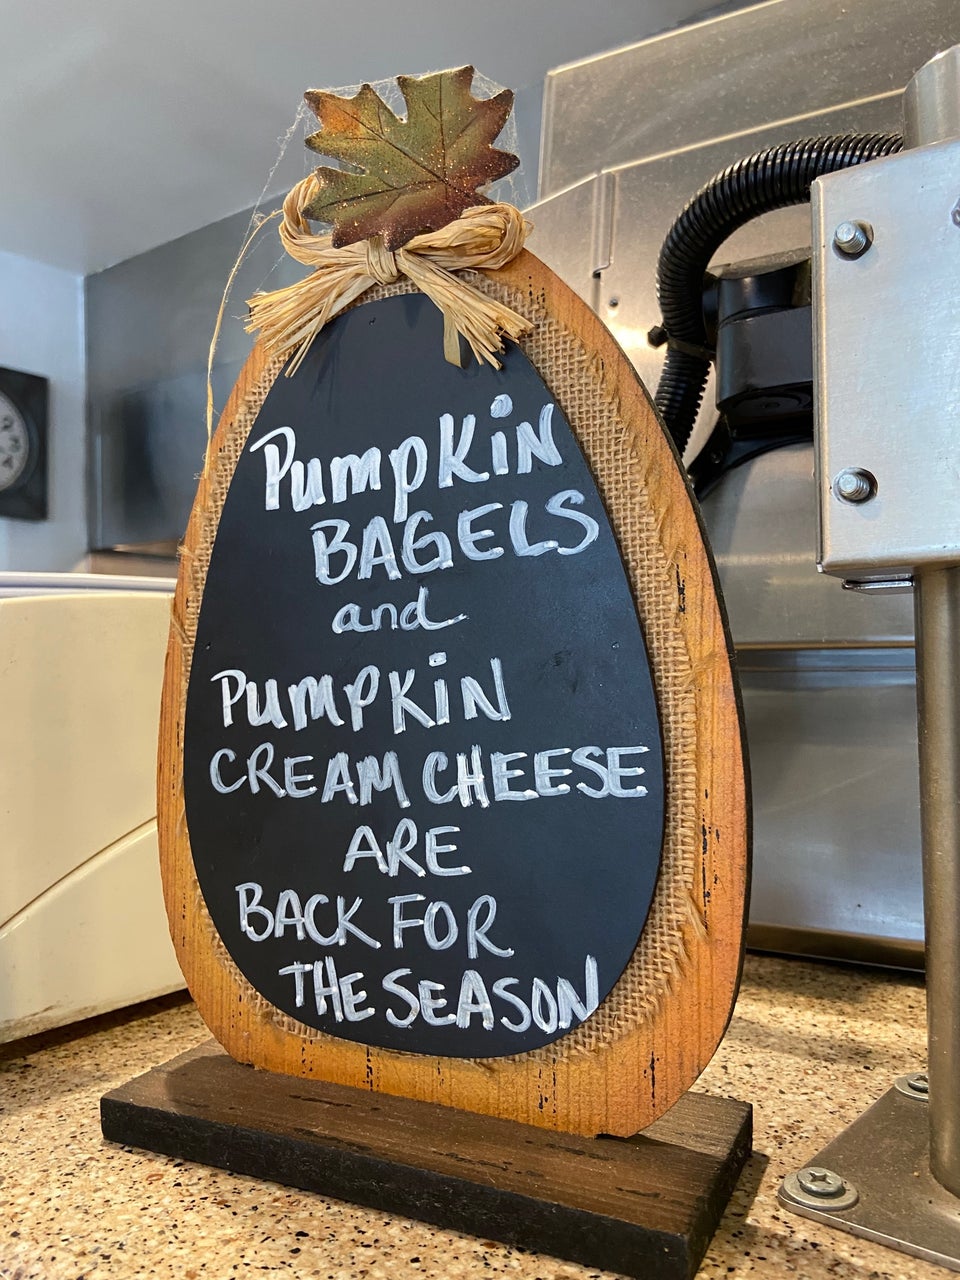 PumpKiN
BAGELS
and
PUMPKiN
CREAM CHEESE
ARE
BACK FOR
THE SEASON